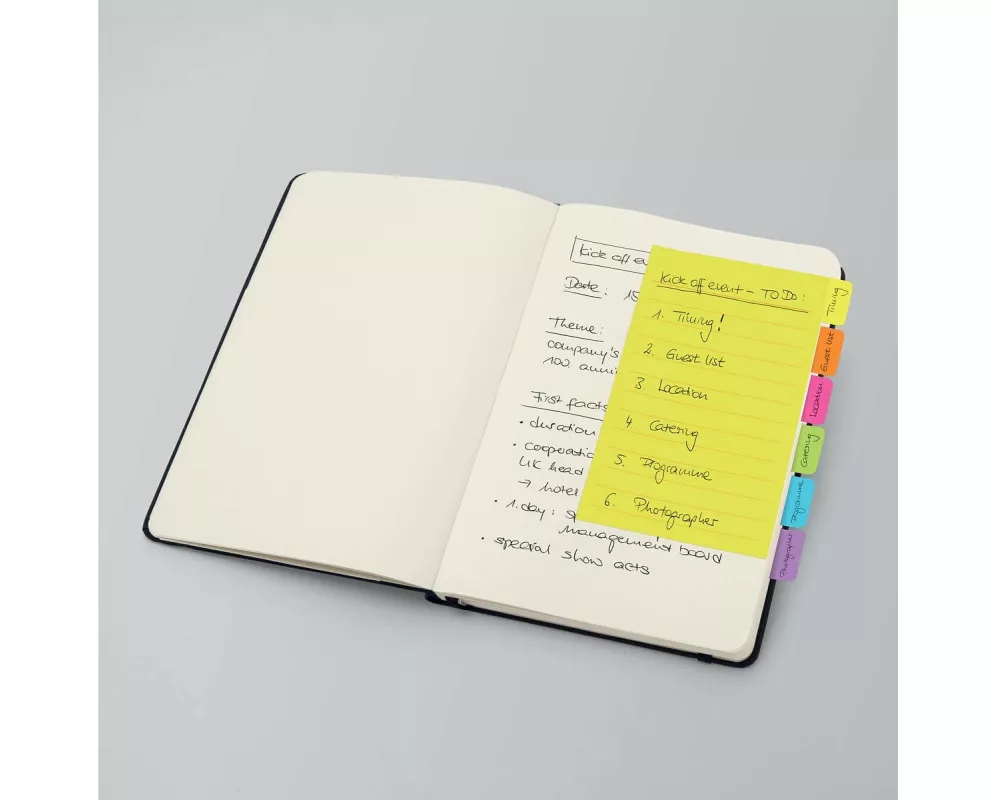 Kick off ev
Date: 15
Theme:
company's
100. anni
First facts
• duration
• cooperatio
UK head
→ hotel
• 1. day: s
management board
• special show acts
Kick off event - TO Do:
1. Timing!
2. Guest list
3. Location
4 Catering
5. Programme
6. Photographer
Timing
Guest list
Location
Catering
Programme
Photographer